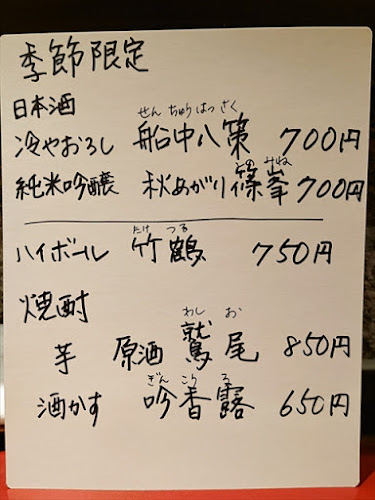 季節限定
日本酒
せん ちゅう はっ さく
冷やおろし 船中八策 700円
しの みね
純米吟醸 秋あがり 篠峯 700円
たけ つる
ハイボール 竹鶴 750円
焼酎
わし お
芋 原酒 鷲尾 850円
ぎん こう ろ
酒かす 吟香露 650円